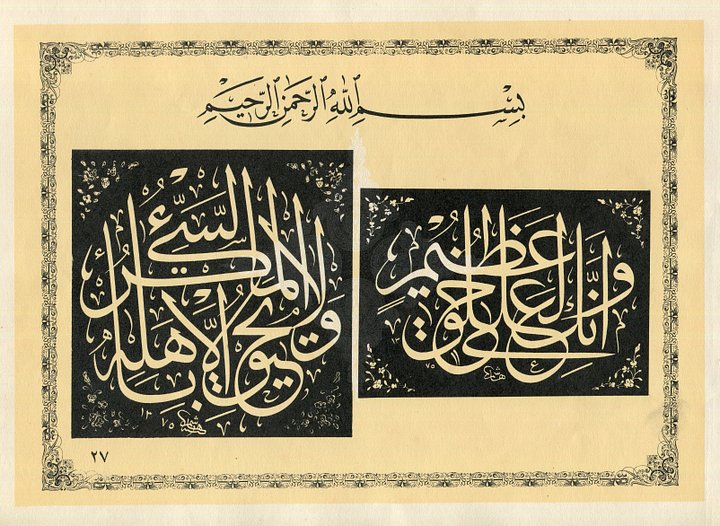 بِسْمِ ٱللّٰهِ ٱلرَّحْمٰنِ ٱلرَّحِيْمِ
وَإِنَّكَ لَعَلىٰ خُلُقٍ عَظِيْمٍ
وَلَا يَحِيْقُ الْمَكْرُ السَّيِّئُ إِلَّا بِأَهْلِهِ
١٣٧٥
٢٧